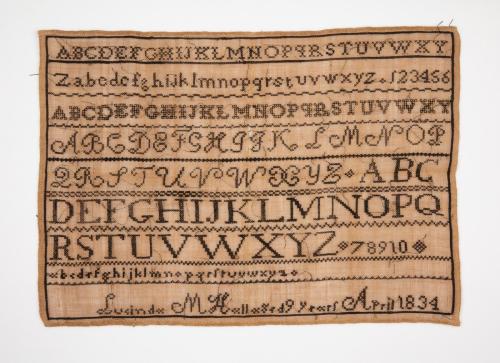 ABCDEFGHIJKLMNOPQRSTUVWXY
Zabcdefghijklmnopqrstuvwxyz 123456
ABCDEFGHIJKLMNOPQRSTUVWXY
ABCDEFGHIJKLMNOP
QRSTUVWXYZ ABC
DEFGHIJKLMNOPQ
RSTUVWXYZ 78910
abcdefghijklmnopqrstuvwxyz
Lucinda M Hall aged 9 years April 1834